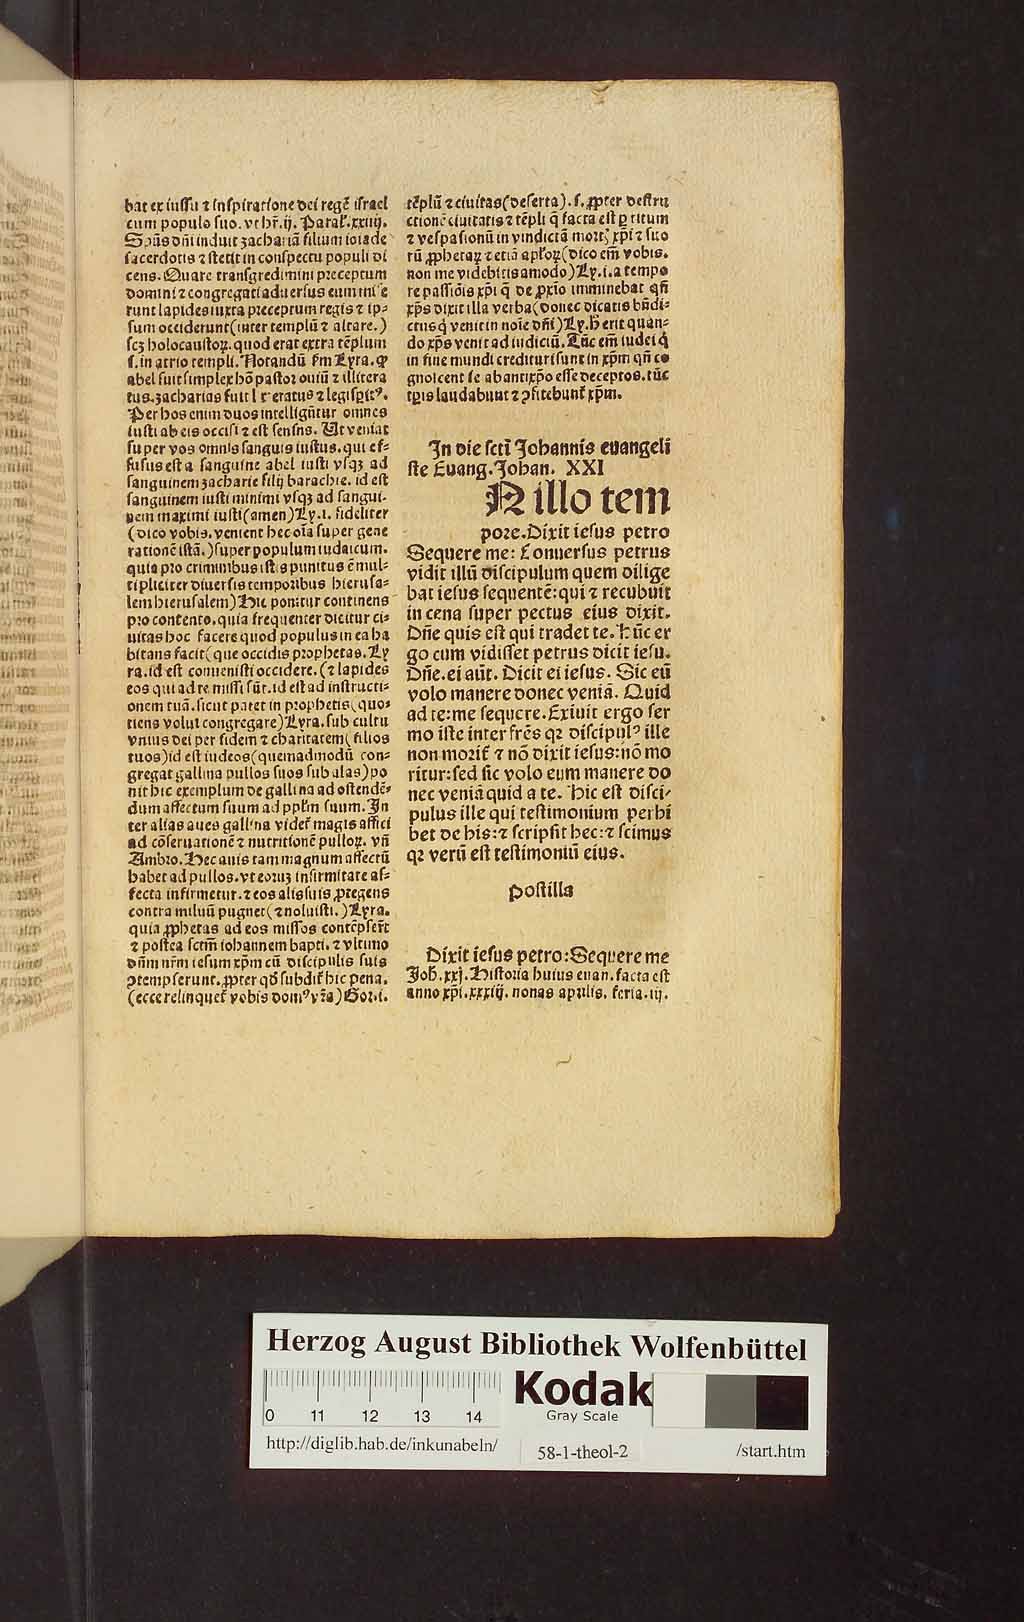 bat ex iussu ⁊ inspiratione dei regē israel
cum populo suo. vt hr̄. ij. Paral'. xxiiij.
Spūs dn̄i induit zachariā filium ioiade
sacerdotis ⁊ stetit in conspectu populi di
cens. Quare transgredimini preceptum
domini ⁊ congregati aduersus eum mise
runt lapides iuxta preceptum regis ⁊ ip-
sum occiderunt (inter templū ⁊ altare.)
scꝫ holocaustoꝝ. quod erat extra tēplum
s. in atrio templi. Notandū sm̄ Lyra. ꝙ
abel fuit simplex hō pastor ouiū ⁊ illitera
tus. zacharias fuit l eratus ⁊ legisꝑitꝰ.
Per hos enim duos intelligūtur omnes
iusti ab eis occisi ⁊ est sensns. Ut veniat
super vos omnis sanguis iustus. qui ef-
fusus est a sanguine abel iusti vsqꝫ ad
sanguinem zacharie filij barachie. id est
sanguinem iusti minimi vsqꝫ ad sangui-
nem maximi iusti (amen) Ly. i. fideliter
(dico vobis. venient hec oīa super gene
rationē istā.) super populum iudaicum.
quia pro criminibus istis punitus ē mul-
tipliciter diuersis temporibus hierusa-
lem hierusalem) Hic ponitur continens
pro contento. quia frequenter dicitur ci-
uitas hoc facere quod populus in ea ha
bitans facit (que occidis prophetas. Ly
ra. id est conuenisti occidere. (⁊ lapides
eos qui ad te missi sūt. id est ad instructi-
onem tuā. sicut patet in prophetis (quo-
tiens volui congregare) Lyra. sub cultu
vnius dei per fidem ⁊ charitatem (filios
tuos) id est iudeos (quemadmodū con-
gregat gallina pullos suos sub alas) po
nit hic exemplum de gallina ad ostendē-
dum affectum suum ad ppl'm suum. In
ter alias aues gallina videt̄ magis affici
ad cōseruationē ⁊ nutritionē pulloꝝ. vn̄
Ambro. Hec auis tam magnum affectū
habet ad pullos. vt eorum infirmitate af-
fecta infirmetur. ⁊ eos alis suis ꝓtegens
contra miluū pugnet (⁊ noluisti.) Lyra.
quia ꝓphetas ad eos missos contēpser̄t
⁊ postea sctm̄ iohannem bapti. ⁊ vltimo
dn̄m nr̄m iesum xp̄m cū discipulis suis
ↄtempserunt. ꝓpter qd̄ subdit̄ hic pena.
(ecce relinquet̄ vobis domꝰ vr̄a) Gor. i.
tēplū ⁊ ciuitas (deserta). s. ꝓpter destru
ctionē ciuitatis ⁊ tēpli q̄ facta est ꝑ titum
⁊ vespasionū in vindictā mortꝭ xp̄i ⁊ suo
rū ꝓphetaꝝ ⁊ etiā apl'oꝝ (dico em̄ vobis.
non me videbitis amodo) Ly. i. a tempo
re passiōis xp̄i q̄ de ꝓxīo imminebat qn̄
xp̄s dixit illa verba (donec dicatis bn̄di-
ctus q̇ venit in noīe dn̄i) Ly. H̄ erit quan-
do xp̄s venit ad iudiciū. Tūc em̄ iudei q̇
in fine mundi credituri sunt in xp̄m qn̄ co
gnoscent se ab antixp̄o esse deceptos. tūc
tp̄is laudabunt ⁊ ↄfitebunt̄ xp̄m.
In die scti Johannis euangeli
ste Euang. Johan. XXI
IN illo tem
pore. Dixit iesus petro
Sequere me: Conuersus petrus
vidit illū discipulum quem dilige
bat iesus sequentē: qui ⁊ recubuit
in cena super pectus eius dixit.
Dn̄e quis est qui tradet te. Hūc er
go cum vidisset petrus dicit iesu.
Dn̄e. ei aūt. Dicit ei iesus. Sic eū
volo manere donec veniā. Quid
ad te: me sequere. Exiuit ergo ser
mo iste inter frēs qꝛ discipulꝰ ille
non morit̄ ⁊ nō dixit iesus: nō mo
ritur: sed sic volo eum manere do
nec veniā quid a te. Hic est disci-
pulus ille qui testimonium perhi
bet de his: ⁊ scripsit hec: ⁊ scimus
qꝛ verū est testimoniū eius.
Postilla
Dixit iesus petro: Sequere me
Joh̄. xxj. Historia huius euan. facta est
anno xp̄i. xxxiij. nonas aprilis. feria. iij.
Herzog August Bibliothek Wolfenbüttel
0 11 12 13 14
Kodak
Gray Scale
http://diglib.hab.de/inkunabeln/
58-1-theol-2
/start.htm